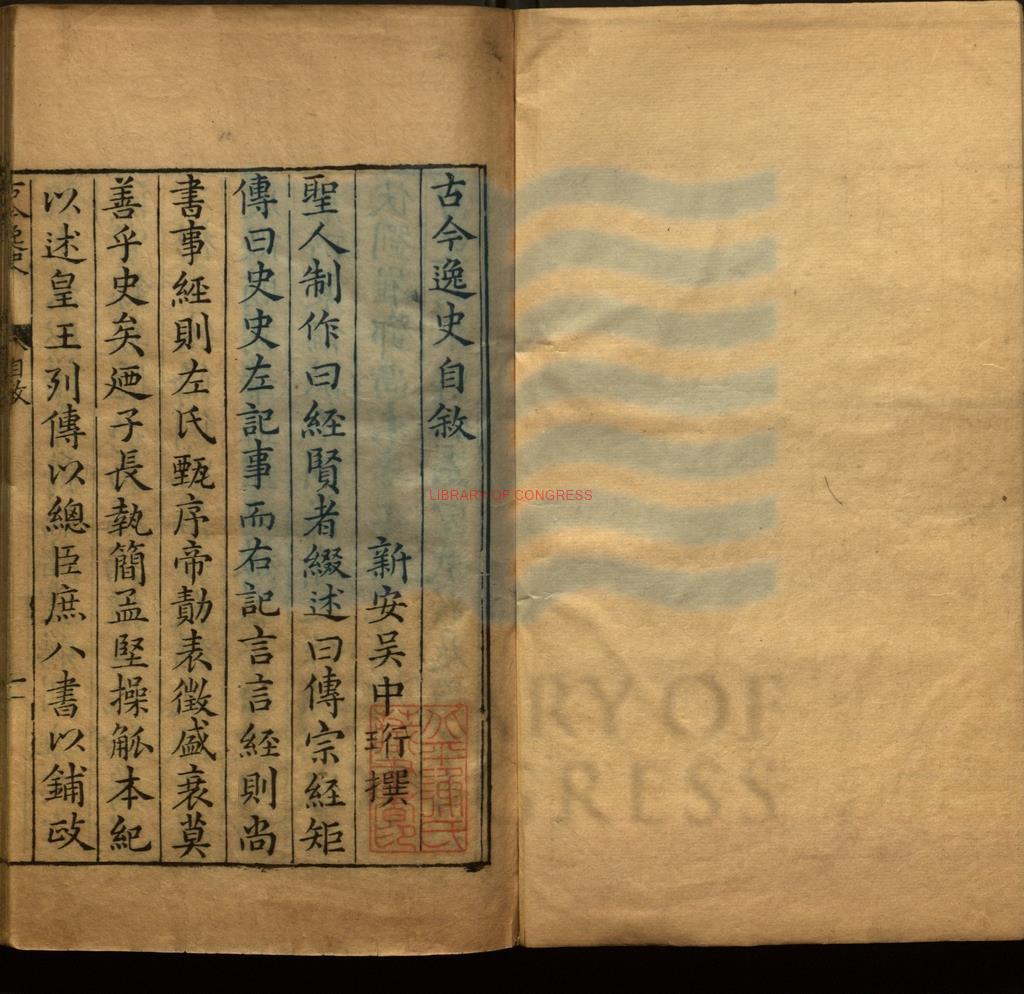 古今逸史自敘
新安吳中珩撰
聖人制作曰經賢者綴述曰傳宗經矩
傳曰史史左記事而右記言言經則尚
書事經則左氏甄序帝勣表徵盛衰莫
善乎史矣廼子長執簡孟堅操觚本紀
以述皇王列傳以總臣庶八書以鋪政
自敘
一
LIBRARY OF CONGRESS